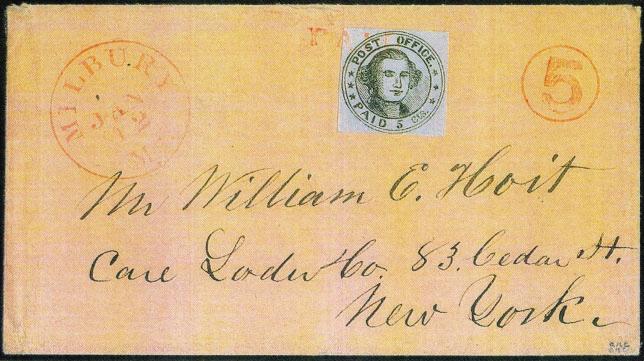 Paid
MILBURY
JAN
12
POST OFFICE.
PAID 5 CTS.
5
Mr William E. Hoit
Care Loder & Co. 83. Cedar St.
New York.